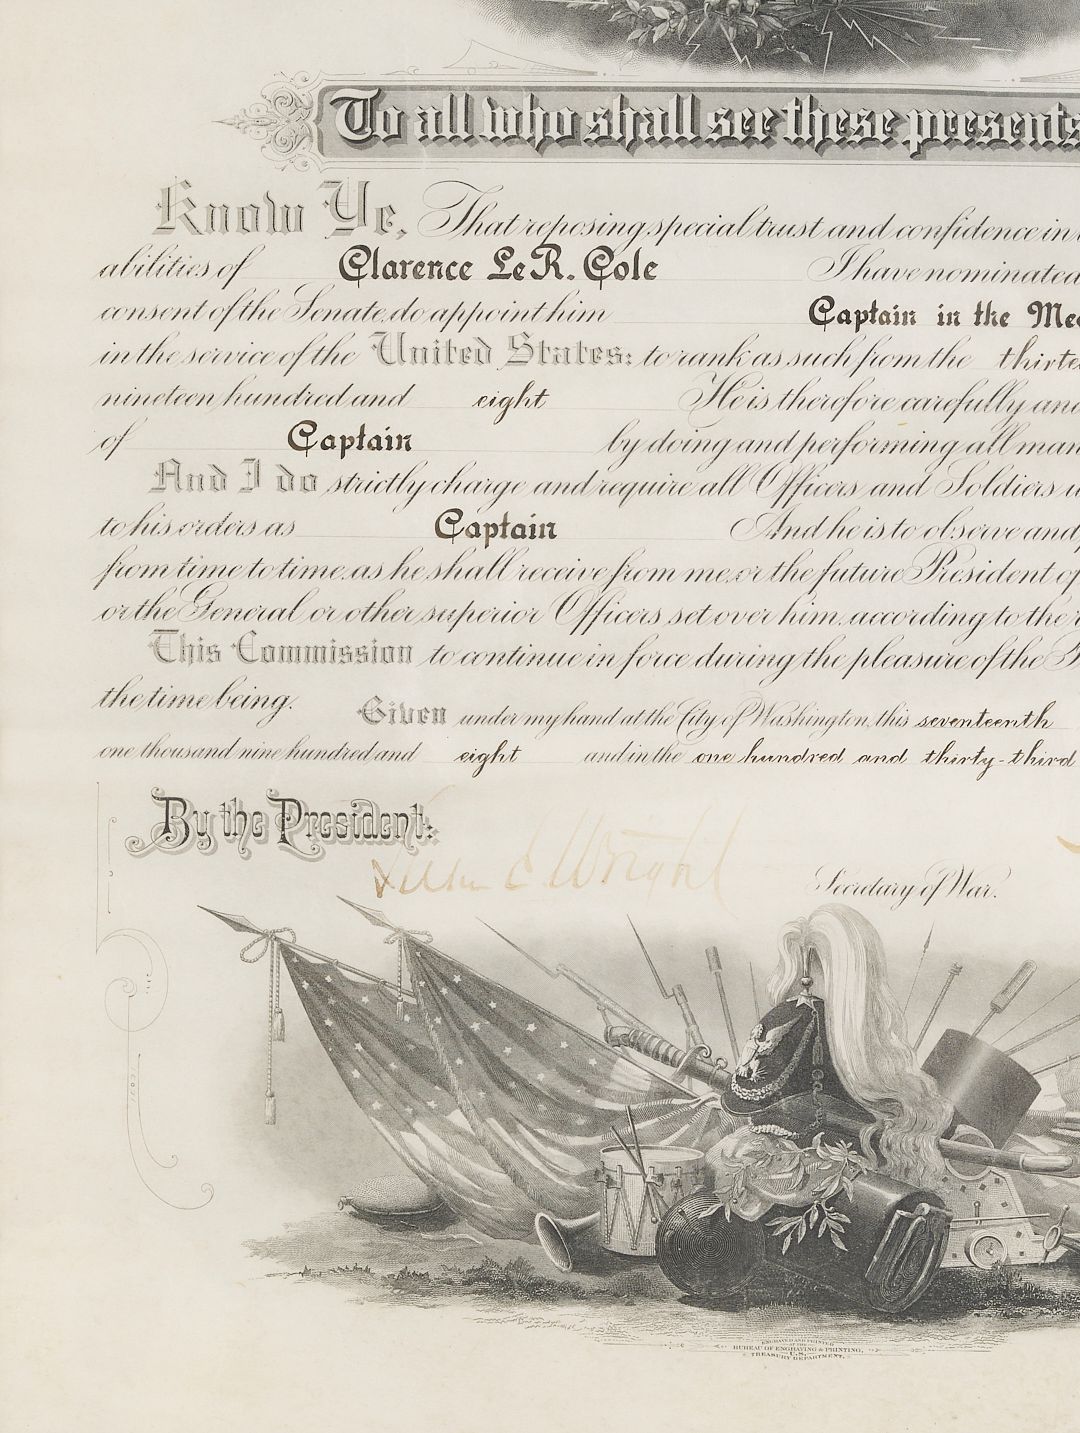 To all who shall see these presents
Know Ye, That reposing special trust and confidence in
abilities of Clarence LeR. Cole I have nominated
consent of the Senate, do appoint him Captain in the Med
in the service of the United States: to rank as such from the thirte
nineteen hundred and eight He is therefore carefully and
of Captain by doing and performing all man
And I do strictly charge and require all Officers and Soldiers u
to his orders as Captain And he is to observe and
from time to time, as he shall receive from me, or the future President of
or the General or other superior Officers set over him, according to the r
This Commission to continue in force during the pleasure of the
the time being.
Given under my hand at the City of Washington, this seventeenth
one thousand nine hundred and eight and in the one hundred and thirty-third
By the President:
E Wright
Secretary of War.
ENGRAVED AND PRINTED
AT THE
BUREAU OF ENGRAVING & PRINTING,
U.S.
TREASURY DEPARTMENT.